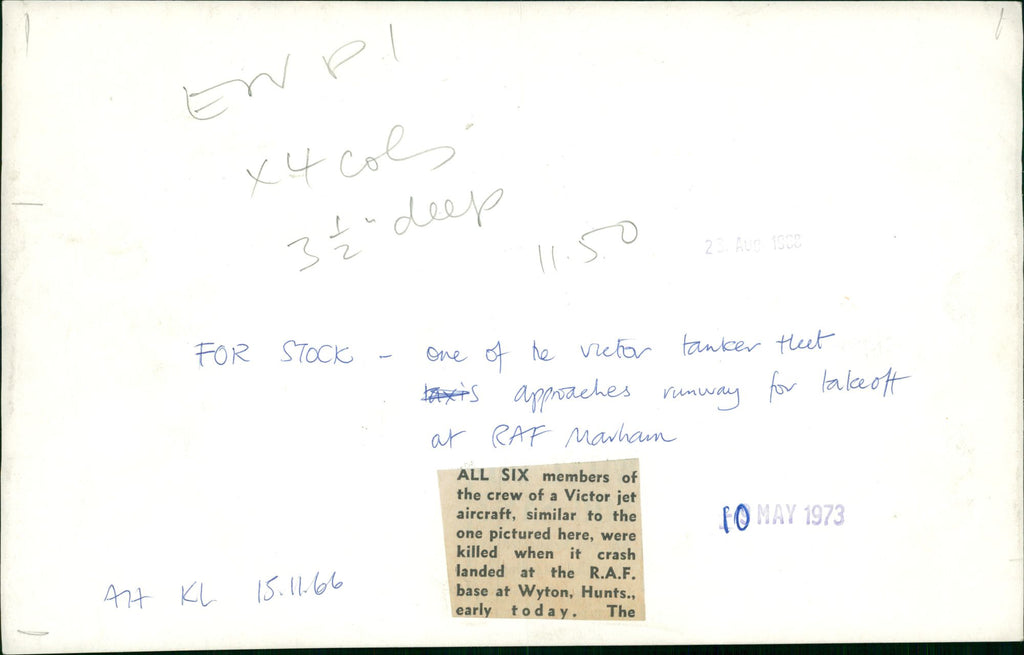 EN P.1
x 4 cols
3 1/2" deep
11.50
Aug 1968
FOR STOCK - one of the victor tanker fleet
taxis approaches runway for takeoff
at RAF Marham
ALL SIX members of
the crew of a Victor jet
aircraft, similar to the
one pictured here, were
killed when it crash
landed at the R.A.F.
base at Wyton, Hunts.,
early today. The
10 MAY 1973
KL 15.11.66